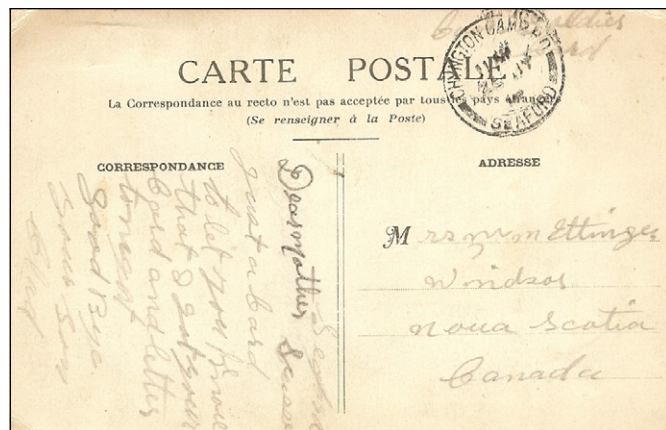 CARTE POSTALE
La Correspondance au recto n'est pas acceptée par tous les pays étrangers
(Se renseigner à la Poste)
CHYNGTON CAMP P.O.
SEAFORD
CORRESPONDANCE
Dear mother
just a Card
to let you know
that I got your
Card and letter
Good Bye
your son
ADRESSE
Mrs Wm Ettinger
Windsor
Nova Scotia
Canada